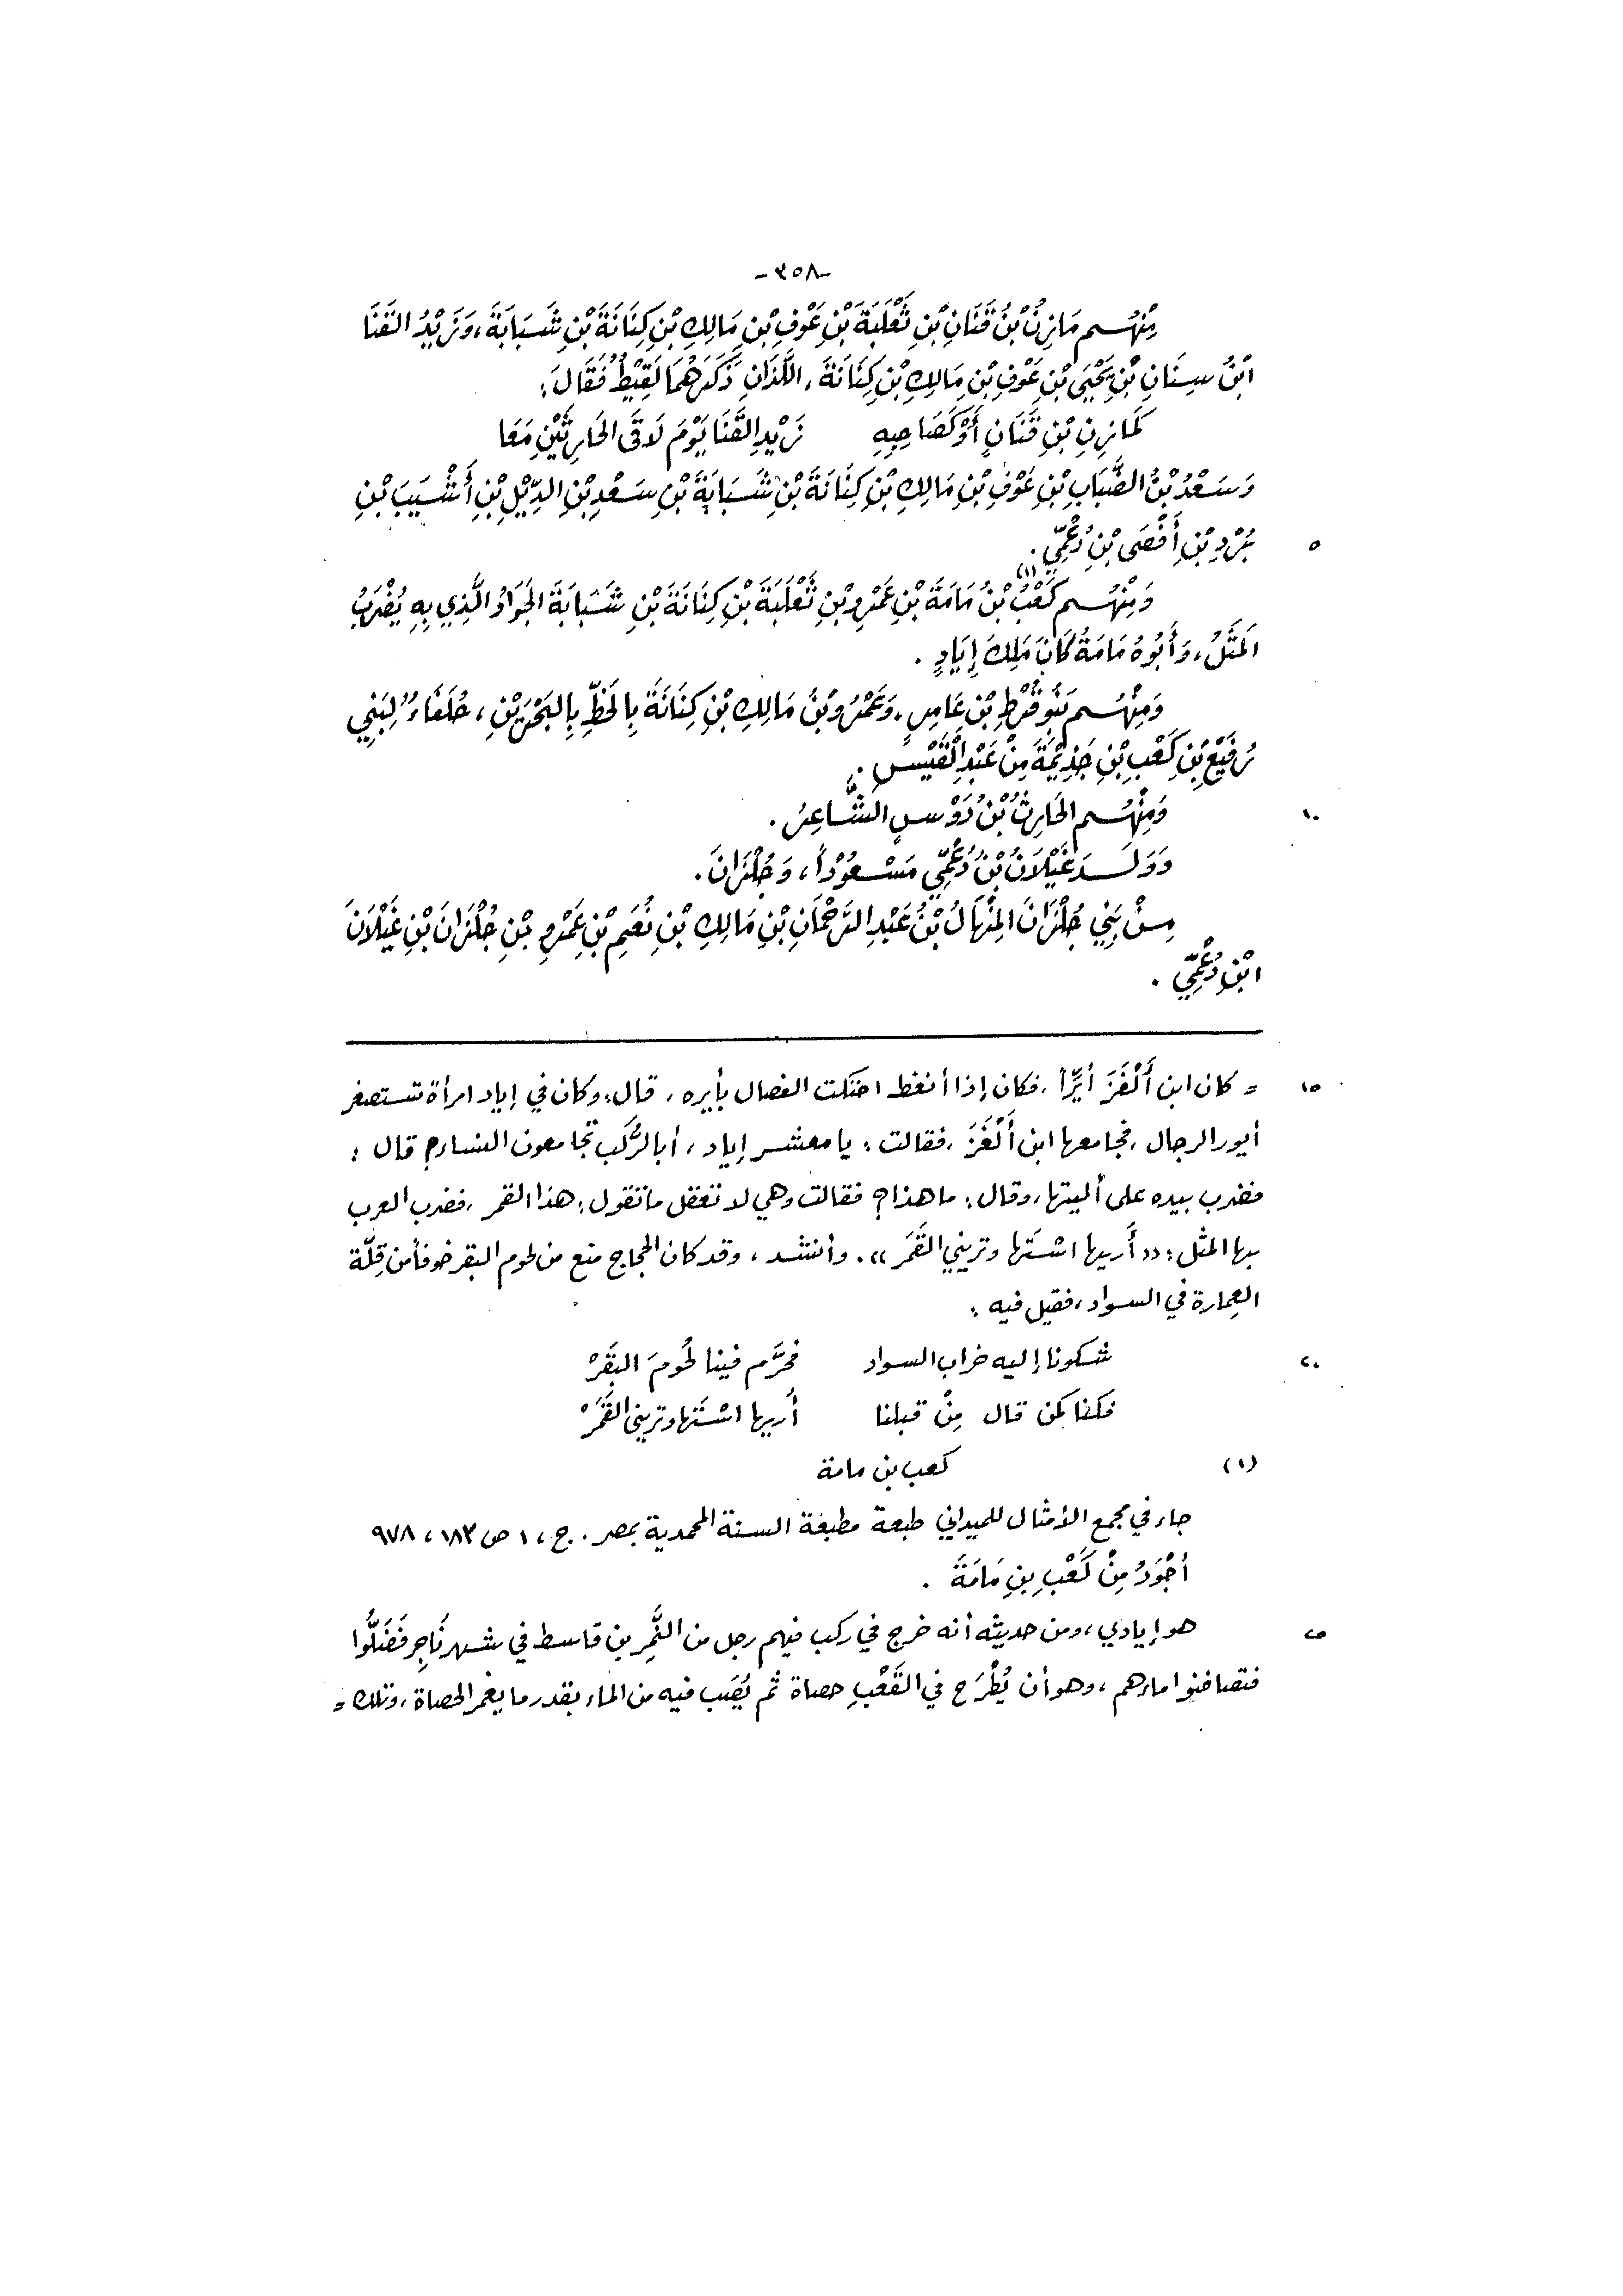 -٣٥٨-
مِنْهُم مَازِنُ بْنُ قَنَانِ بْنِ ثَعْلَبَةَ بْنِ عَوْفِ بْنِ مَالِكِ بْنِ كِنَانَةَ بْنِ شَبَابَةَ، وَزَيْدُ القَنَا
ابْنُ سِنَانِ بْنِ يَحْيَى بْنِ عَوْفِ بْنِ مَالِكِ بْنِ كِنَانَةَ، اللَّذَانِ ذَكَرَهُمَا لَقِيْطٌ فَقَالَ:
كَمَازِنِ بْنِ قَنَانٍ أَوْ كَصَاحِبِهِ    زَيْدِ القَنَا يَوْمَ لَاقَى الحَارِثَيْنِ مَعَا
وَسَعْدُ بْنُ الضَّبَابِ بْنِ عَوْفِ بْنِ مَالِكِ بْنِ كِنَانَةَ بْنِ شَبَابَةَ بْنِ سَعْدِ بْنِ الدِّيْلِ بْنِ أَشْيَبَ بْنِ
٥ بُرْدِ بْنِ أَفْصَى بْنِ دُعْمِيّ.
وَمِنْهُم كَعْبُ(١) بْنُ مَامَةَ بْنِ عَمْرِو بْنِ ثَعْلَبَةَ بْنِ كِنَانَةَ بْنِ شَبَابَةَ الجَوَادُ الَّذِي بِهِ يُضْرَبُ
المَثَلُ، وَأَبُوهُ مَامَةُ كَانَ مَلِكَ إِيَادٍ.
وَمِنْهُم بَنُو قُرْطِ بْنِ عَامِرٍ، وَعَمْرُو بْنُ مَالِكِ بْنِ كِنَانَةَ بِالخَطِّ بِالبَحْرَيْنِ، حُلَفَاءُ لِبَنِي
رُفَيْعِ بْنِ كَعْبِ بْنِ جَذِيْمَةَ مِنْ عَبْدِ الْقَيْسِ.
١٠ وَمِنْهُم الحَارِثُ بْنُ دَوْسٍ الشَّاعِرُ.
وَوَلَدَ غَيْلَانُ بْنُ دُعْمِيّ مَسْعُوْداً، وَجُلْزَانَ.
مِنْ بَنِي جُلْزَانَ المِنْهَالُ بْنُ عَبْدِ الرَّحْمَانِ بْنِ مَالِكِ بْنِ نُعَيمِ بْنِ عَمْرِو بْنِ جُلْزَانَ بْنِ غَيْلَانَ
ابْنِ دُعْمِيّ.
١٥ = كان ابن أَلْغَزَ أيِّراً، فكان إذا أنغط احتكت الفصال بأيره، قال: وكان في إياد امرأة تستصغر
أيور الرجال، فجامعها ابن أَلْغَزَ، فقالت: يا معشر إياد، أبا لرُّكَب تجامعون النساء؟ قال:
فضرب بيده على أليتها، وقال: ما هذا؟ فقالت وهي لا تعقل ما تقول: هذا القمر، فضرب العرب
بها المثل: «أريها اسْتَها وتريني القَمَر». وأنشد، وقد كان الحجاج منع من لحوم البقر خوفاً من قِلّة
العِمارة في السواد، فقيل فيه:
٢٠ شكونا إليه خراب السواد    فحرَّم فينا لُحومَ البَقَرْ
فكنا كمن قال مِنْ قبلنا    أُريها اسْتَها وتريني القَمَرْ
(١) كعب بن مامة
جاء في مجمع الأمثال للميداني طبعة مطبعة السنة المحمدية بمصر. ج، ١ ص ١٨٣، ٩٧٨
أَجْوَدُ مِنْ كَعْبِ بنِ مَامَةَ.
٢٥ هو إيادي، ومن حديثه أنه خرج في ركب فيهم رجل من النَّمِر بن قاسط في شهر نَاجِر فَضَلُّوا
فتصافنوا ماءهم، وهو أن يُطْرَح في القَعْبِ حصاة ثم يُصَب فيه من الماء بقدر ما يغمر الحصاة، وتلك =